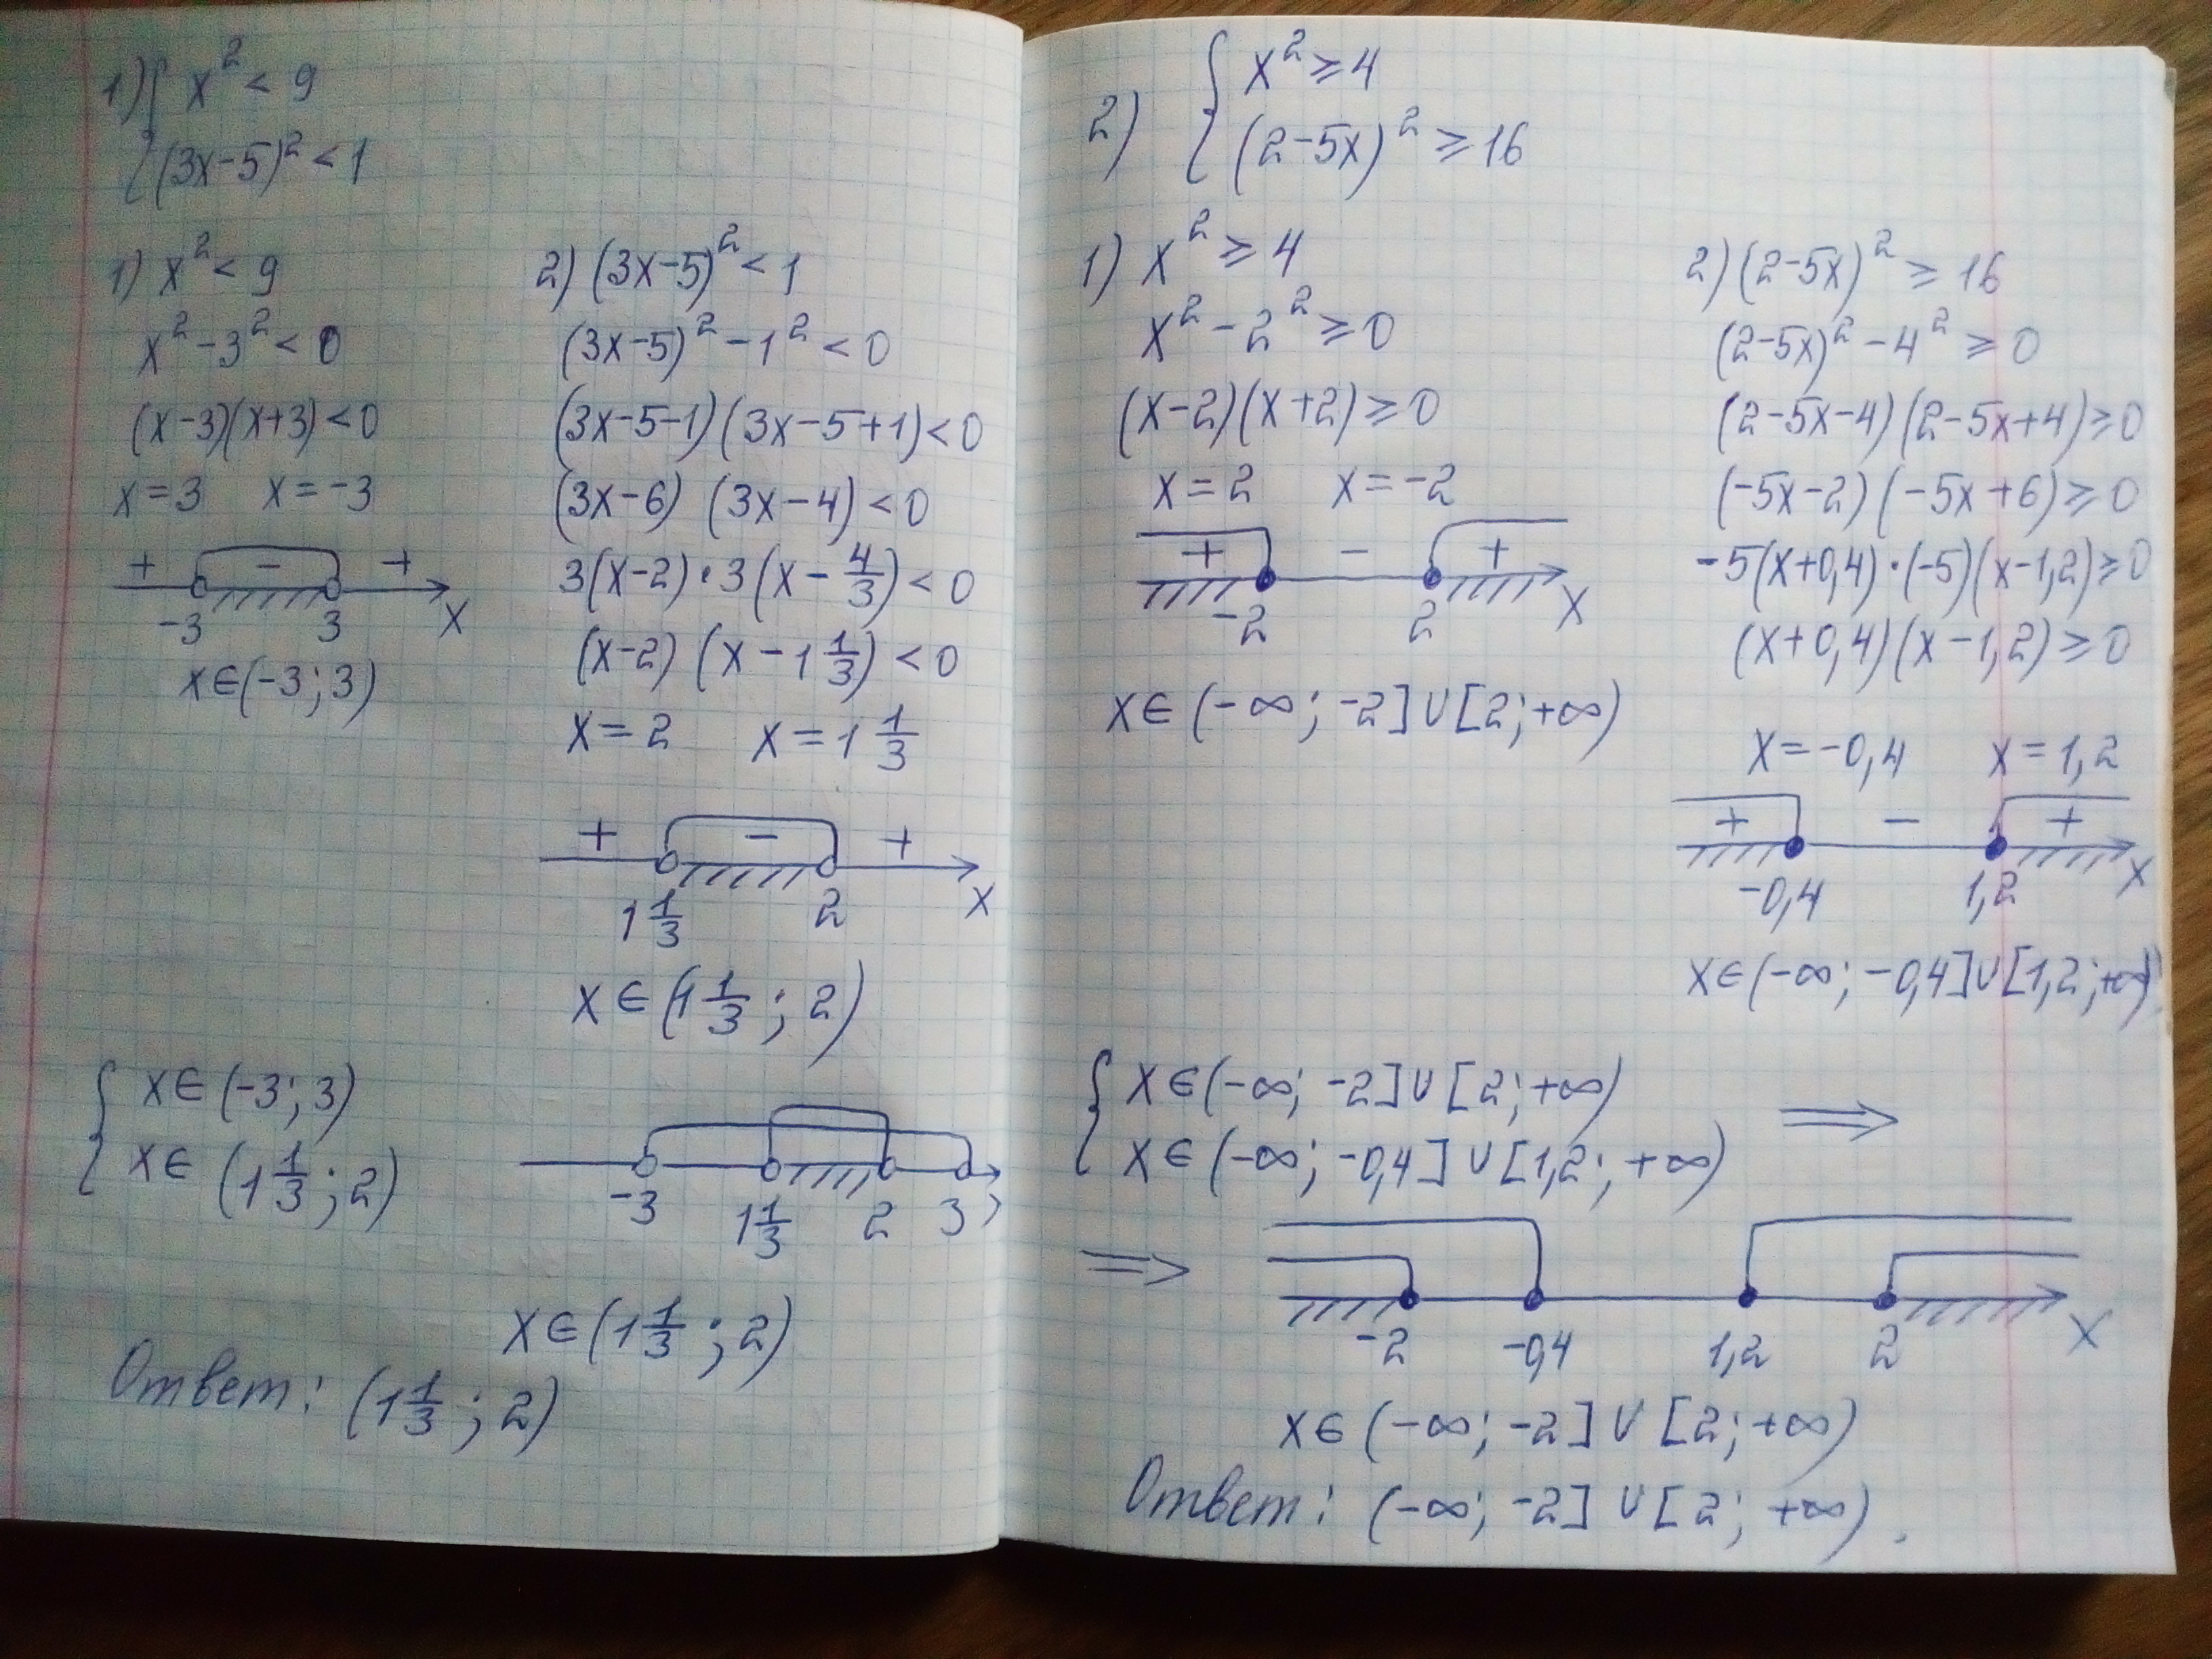 1) { x² < 9
(3x-5)² < 1
1) x² < 9
x² - 3² < 0
(x-3)(x+3) < 0
x = 3 x = -3
+ - +
-3 3 x
x∈(-3; 3)
2) (3x-5)² < 1
(3x-5)² - 1² < 0
(3x-5-1)(3x-5+1) < 0
(3x-6) (3x-4) < 0
3(x-2)·3(x-4/3) < 0
(x-2) (x - 1 1/3) < 0
x = 2 x = 1 1/3
+ - +
1 1/3 2 x
x∈(1 1/3; 2)
{ x∈(-3; 3)
x∈(1 1/3; 2)
-3 1 1/3 2 3
x∈(1 1/3; 2)
Ответ: (1 1/3; 2)
2) { x² ≥ 4
(2-5x)² ≥ 16
1) x² ≥ 4
x² - 2² ≥ 0
(x-2)(x+2) ≥ 0
x = 2 x = -2
+ - +
-2 2 x
x∈(-∞; -2]∪[2; +∞)
2) (2-5x)² ≥ 16
(2-5x)² - 4² ≥ 0
(2-5x-4)(2-5x+4) ≥ 0
(-5x-2)(-5x+6) ≥ 0
-5(x+0,4)·(-5)(x-1,2) ≥ 0
(x+0,4)(x-1,2) ≥ 0
x = -0,4 x = 1,2
+ - +
-0,4 1,2 x
x∈(-∞; -0,4]∪[1,2; +∞)
{ x∈(-∞; -2]∪[2; +∞) ⟹
x∈(-∞; -0,4]∪[1,2; +∞)
⟹
-2 -0,4 1,2 2 x
x∈(-∞; -2]∪[2; +∞)
Ответ: (-∞; -2]∪[2; +∞).